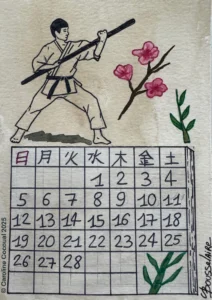 日 月 火 水 木 金 土
1 2 3 4
5 6 7 8 9 10 11
12 13 14 15 16 17 18
19 20 21 22 23 24 25
26 27 28
© Caroline Coolsaat 2025